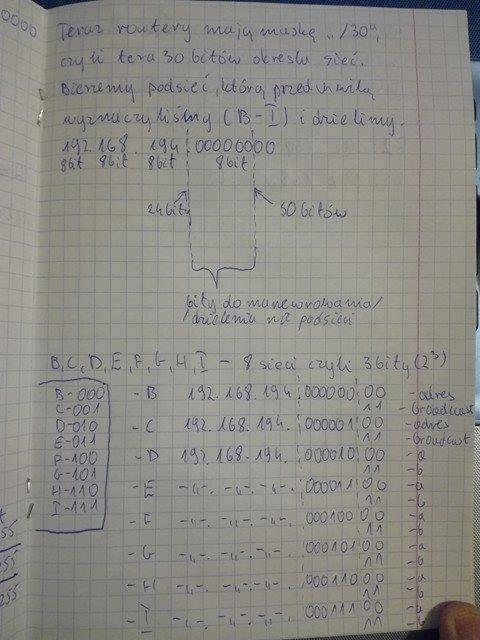 0000
Teraz routery mają maskę „/30",
czyli tera 30 bitów określa sieć.
Bierzemy podsieć, którą przed chwilą
wyznaczyliśmy (B-I) i dzielimy.
192.168.194.00000000
8bit 8bit 8bit 8bit
24bity 30bitów
bity do manewrowania/
/dzielenia na podsieci
B,C,D,E,F,G,H,I - 8 sieci czyli 3bity (2³)
B-000
C-001
D-010
E-011
F-100
G-101
H-110
I-111
-B 192.168.194. 000000 00 -adres
11 -broadcast
-C 192.168.194. 000001 00 -adres
11 -broadcast
-D 192.168.194. 000010 00 -a
11 -b
-E -„-. -„-. -„-. 000011 00 -a
11 -b
-F -„-. -„-. -„-. 000100 00 -a
11 -b
-G -„-. -„-. -„-. 000101 00 -a
11 -b
-H -„-. -„-. -„-. 000110 00 -a
11 -b
-I -„-. -„-. -„-. 000111 00 -a
11 -b
55
255
255